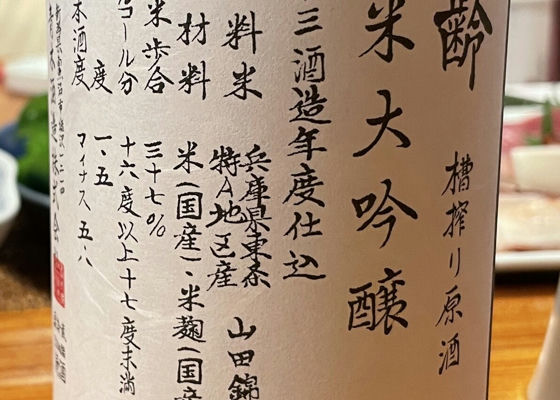 齢
米大吟醸
槽搾り原酒
三酒造年度仕込
料米 兵庫県東条
特A地区産 山田錦
材料 米(国産)、米麹(国産
米歩合 三十七%
コール分 十六度以上十七度未満
度 一、五
本酒度 マイナス 五八
青木酒造株式会